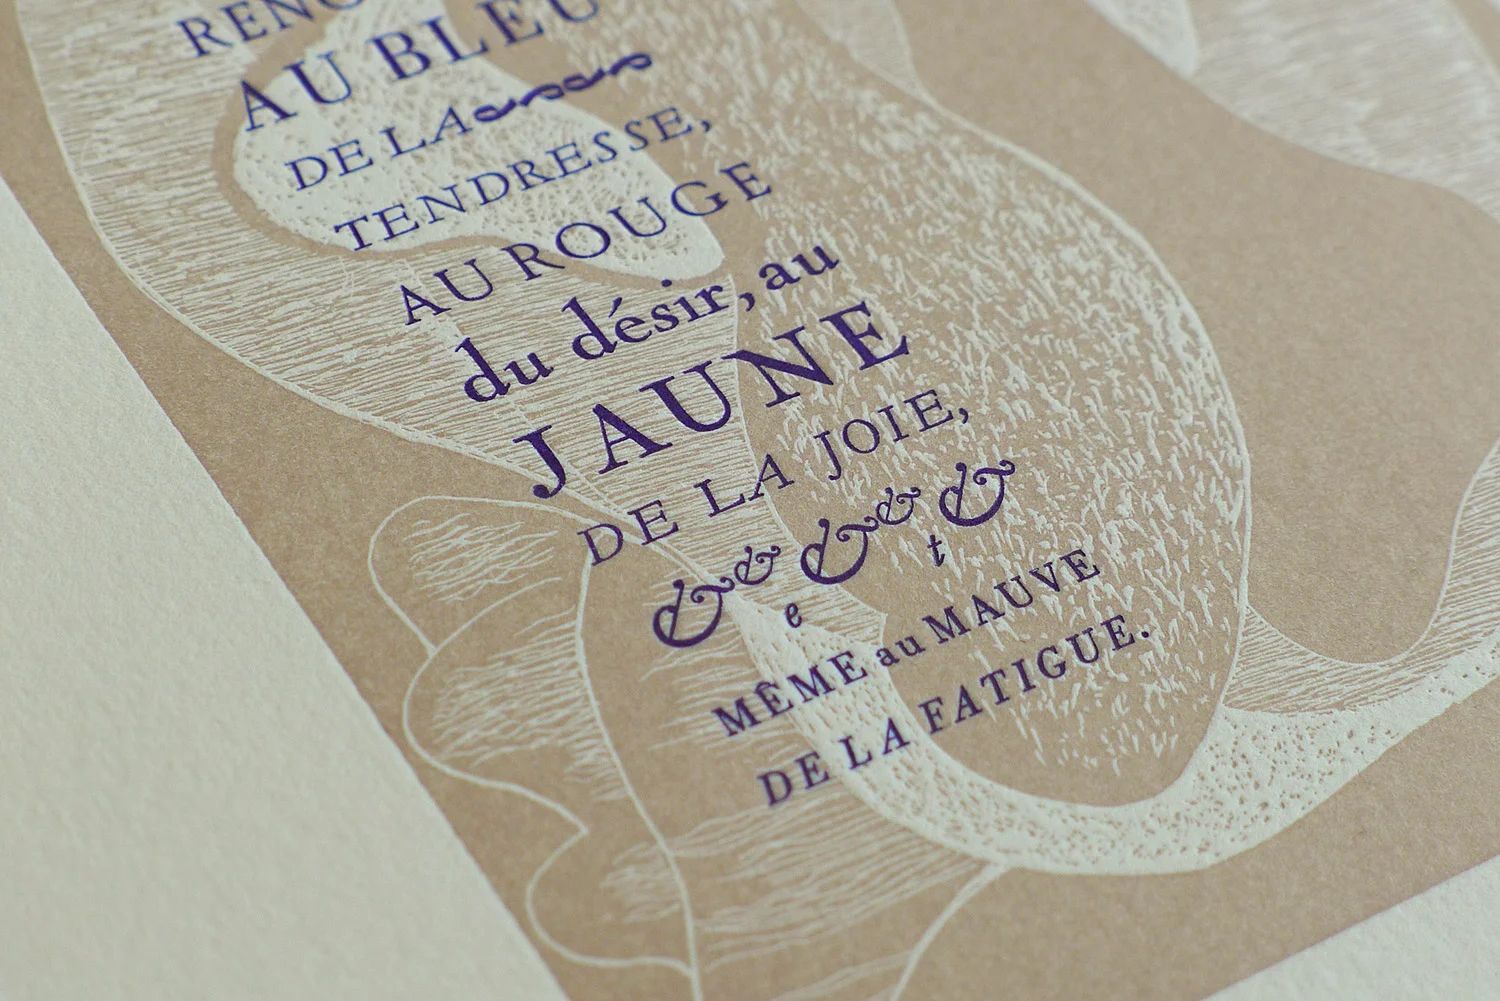 AU BLEU
DE LA
TENDRESSE,
AU ROUGE
du désir, au
JAUNE
DE LA JOIE,
& & & & &
e t
MÊME au MAUVE
DE LA FATIGUE.